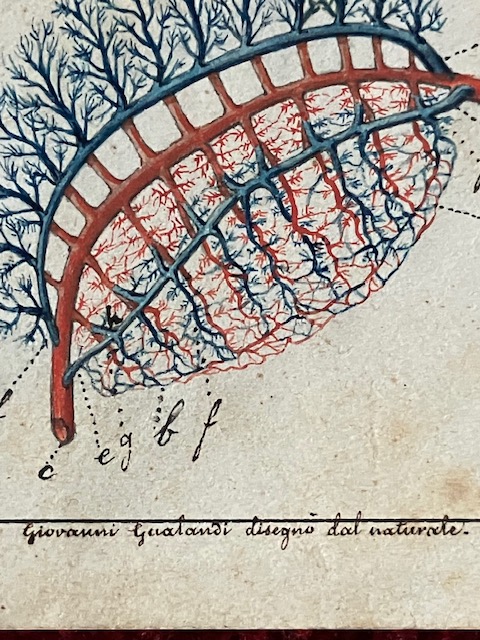 e g b f
c
Giovanni Gualandi disegnò dal naturale.